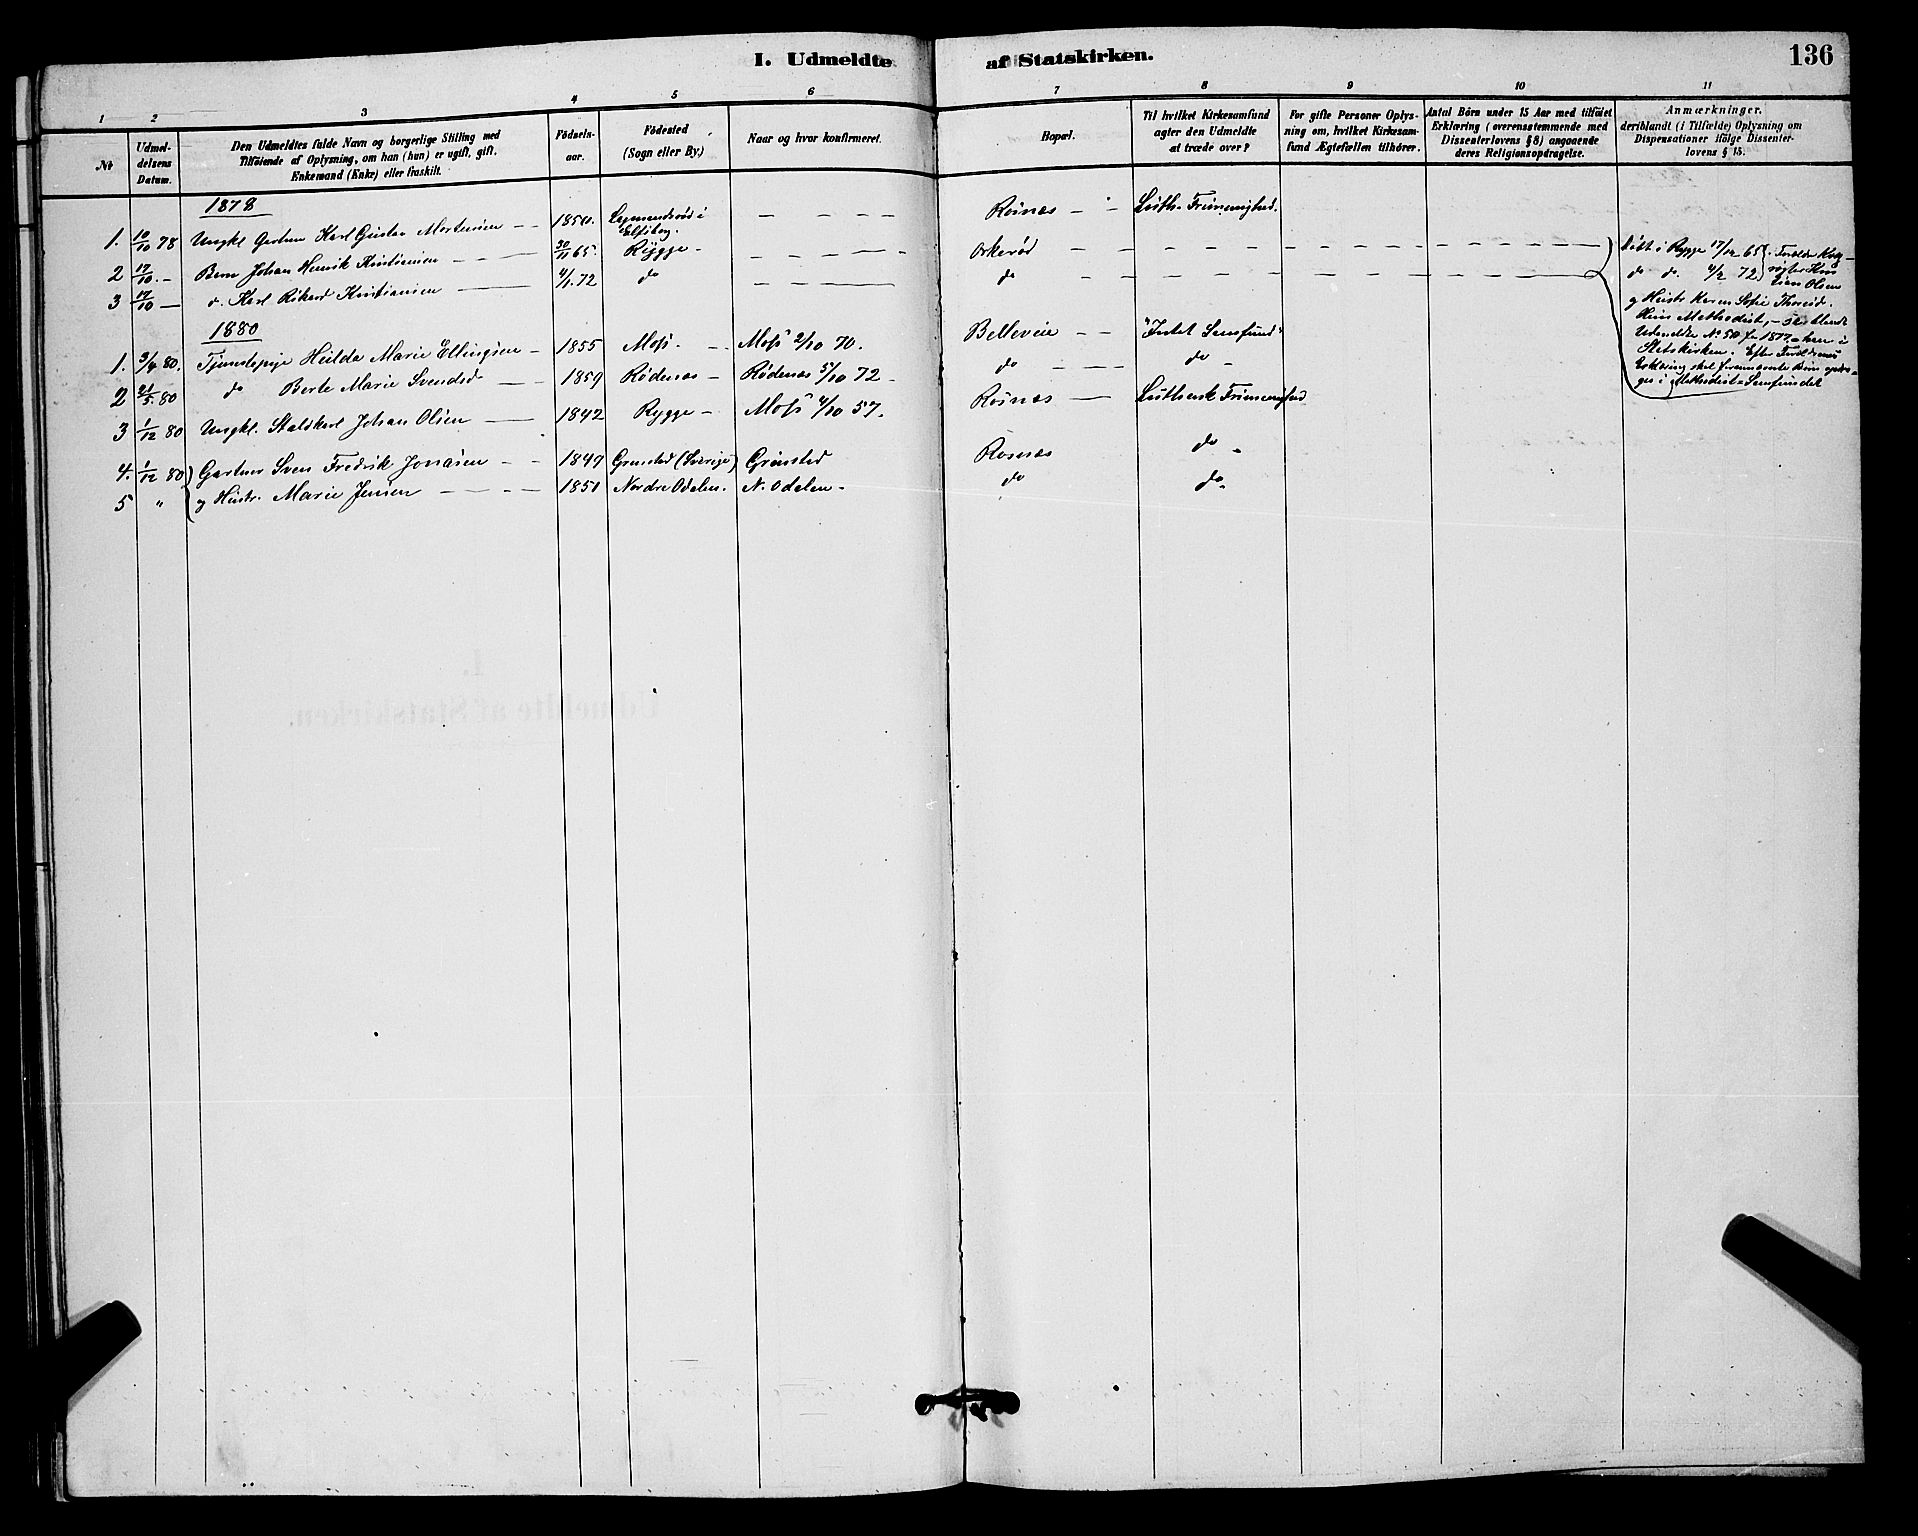 I. Udmeldte af Statskirken.
136
1 2 3 4 5 6 7 8 9 10 11
Nr
Udmel-
delsens
Datum.
Den Udmeldtes fulde Navn og borgerlige Stilling med
Tilföiende af Oplysning, om han (hun) er ugift, gift,
Enkemand (Enke) eller fraskilt.
Födsels-
aar.
Födested
(Sogn eller By.)
Naar og hvor konfirmeret.
Bopæl.
Til hvilket Kirkesamfund
agter den Udmeldte
at træde over?
For gifte Personer Oplys-
ning om, hvilket Kirkesam-
fund Ægtefællen tilhörer.
Antal Börn under 15 Aar med tilföiet
Erklæring (overensstemmende med
Dissenterlovens § 8) angaaende
deres Religionsopdragelse.
Anmærkninger.
deriblandt (i Tilfælde) Oplysning om
Dispensationer ifölge Dissenter-
lovens § 15.
1878
1. 10/10 78 Ungkl Gartner Karl Gustav Mortensen — — 1850. i Elfsborg. — — — — Rosnæs — — Luth. Frimenighed.
2 17/10. — Barn Johan Henrik Kristiansen — — — 30/11 65. Rygge — — — — — Orkeröd — — — —
3 17/10 — do. Karl Rikard Kristiansen — 4/1. 72 do — — — — do — — — —
döbt i Rygge 17/12 65
do do. 4/2 72
Forældre
Olsen
og Hustr Karen Sofie
Methodist, —
Udmeldte No 50 for 1877 — hun i
Statskirken. Efter Forældrenes
Erklæring skal förnævnte Börn opdra-
ges i Methodist-Samfundet
1880
1. 3/4 80. Tjenestepige Hulda Marie Ellingsen — 1855 Moss. — — Moss 2/10 70. Belleveie — — "Intet Samfund"
2 24/5. 80 do Berte Marie Svendsd — — 1859 Rödenæs — Rödenæs 5/10 72 — do — — — do —
3 1/12 80 Ungkl. Staldkarl Johan Olsen — 1842 Rygge — Moss 4/10 57. Rosnæs — Luthersk Frimenighed
4. 1/12 80 Gartner Sven Fredrik Jonasen — — 1849 Grimsted (Sverige) Grimsted Rosnæs do —
5 " og Hustr. Marie Jensen — — — — 1851 Nordre Odalen. N. Odalen — do do.